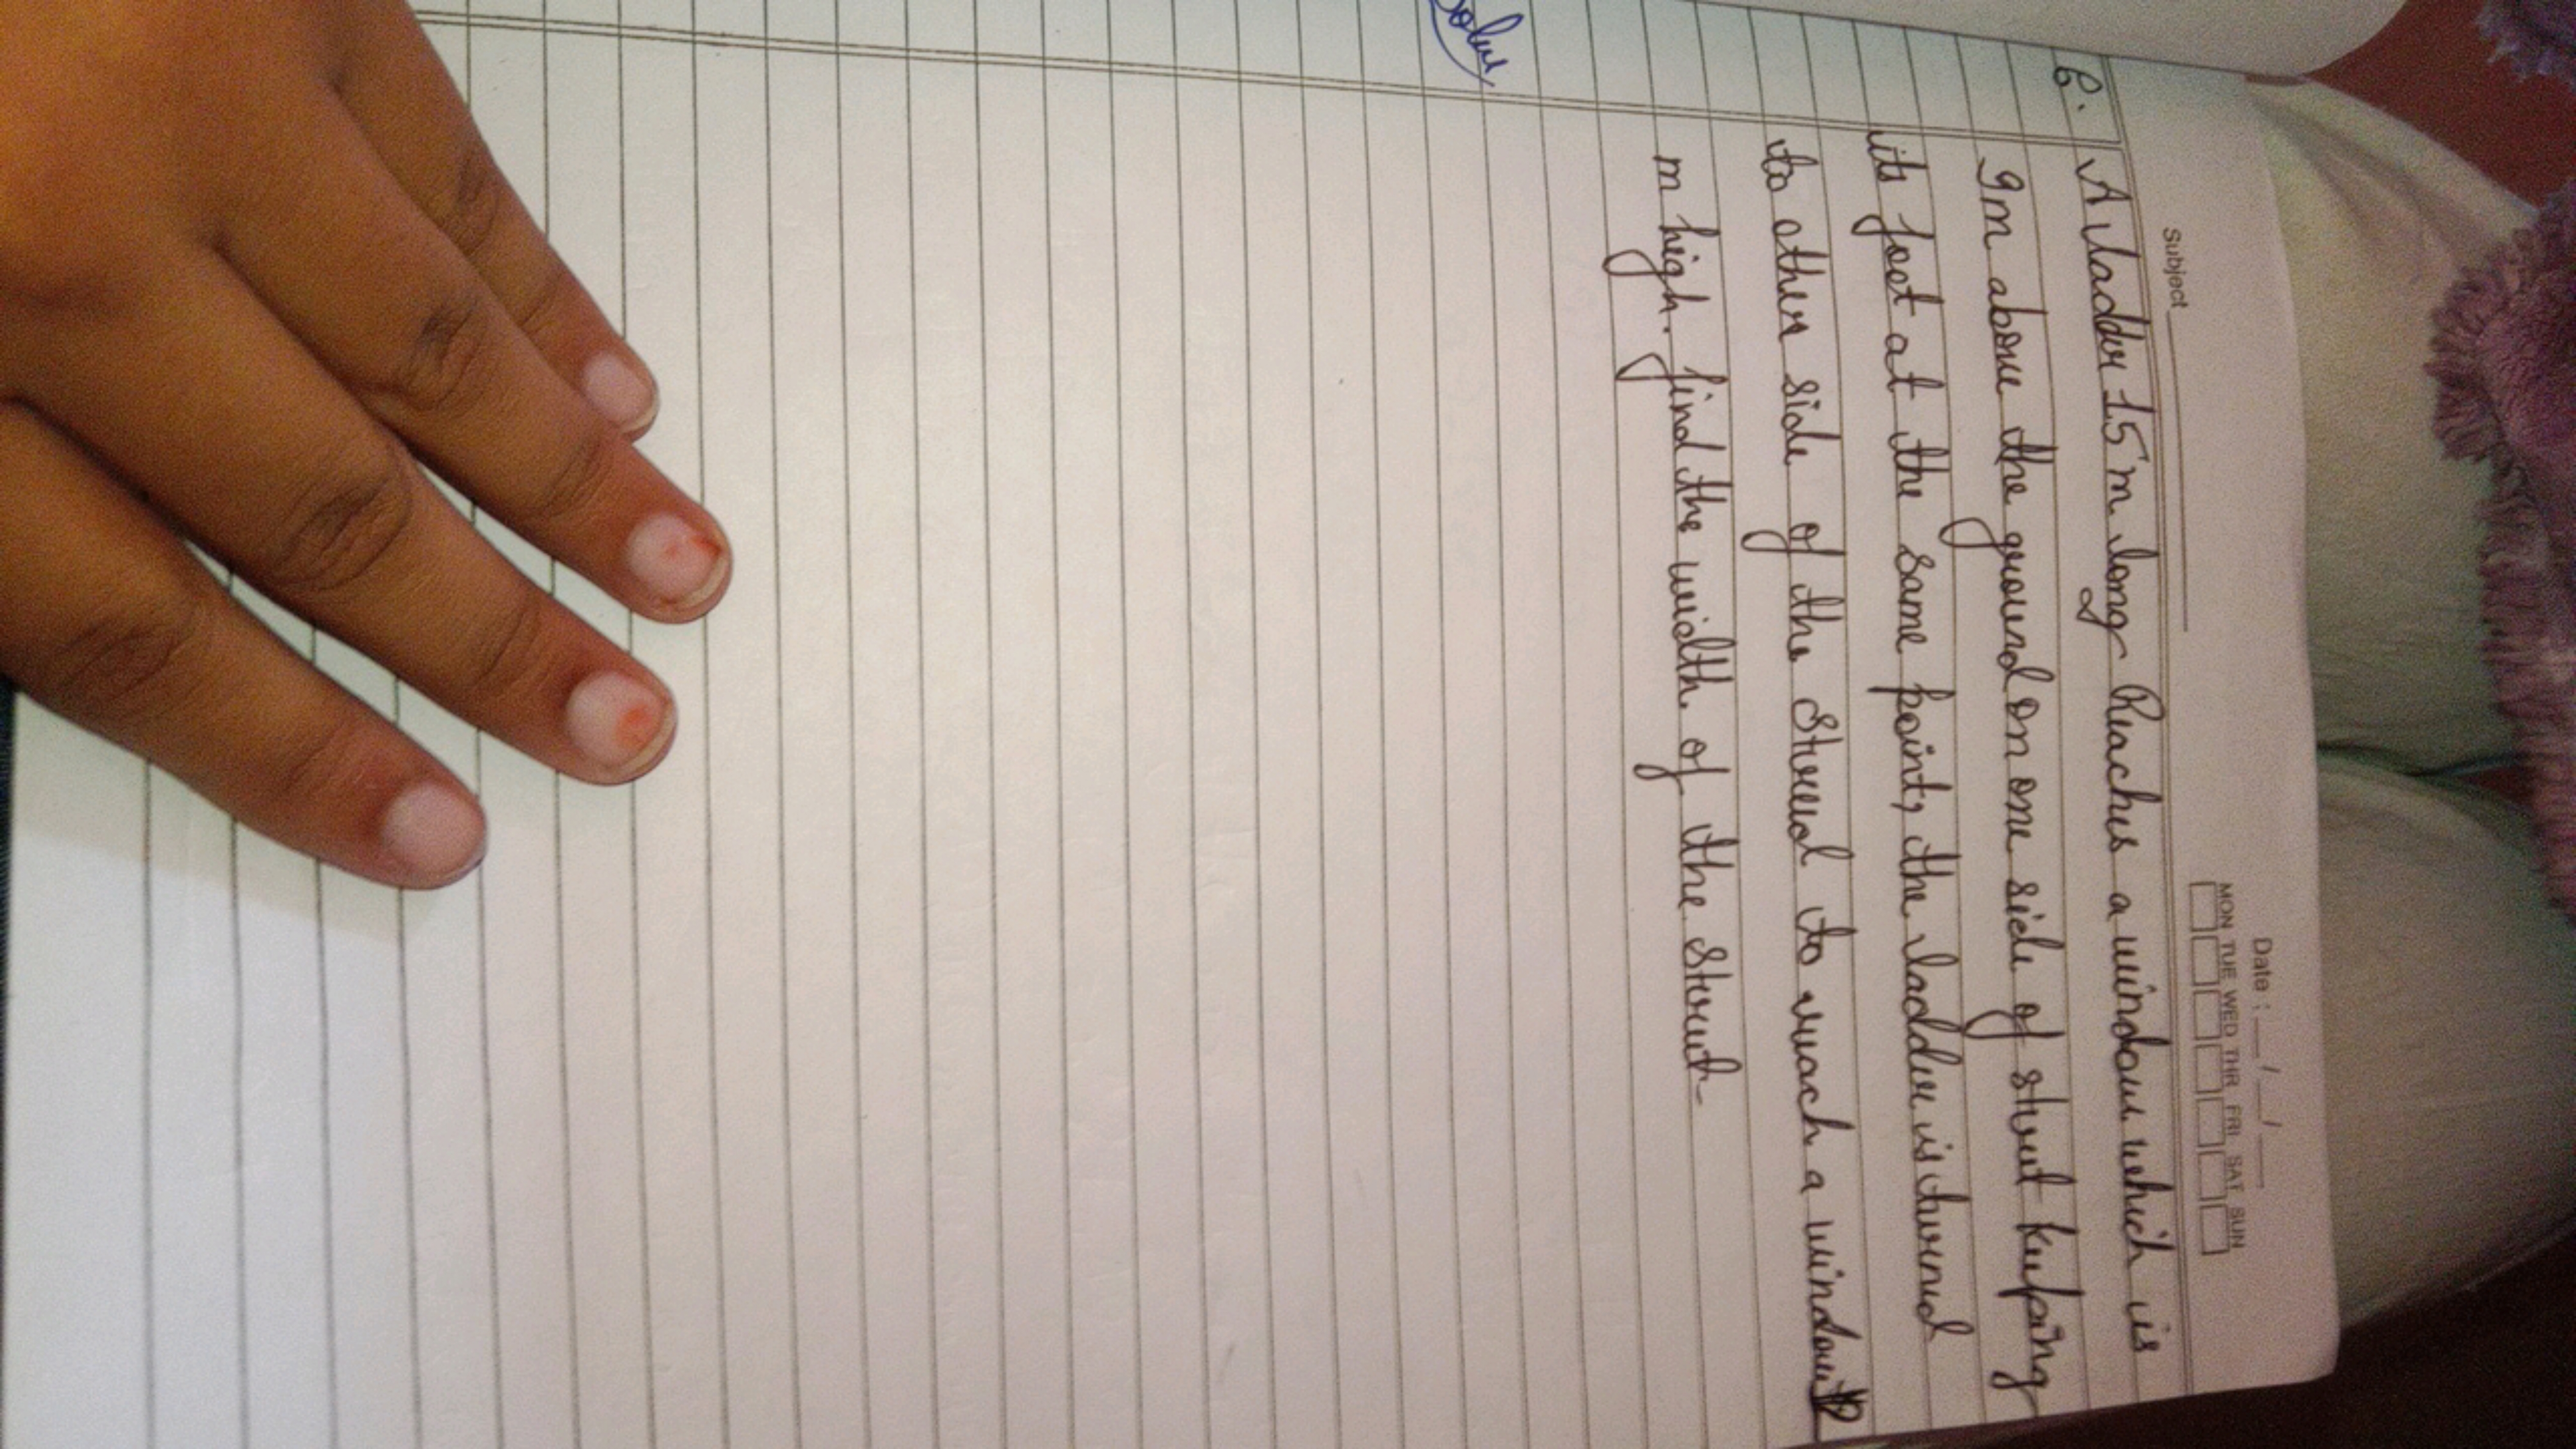 Subject
Date : __/__/__
MON TUE WED THR FRI SAT SUN
6. A ladder 15m long Reaches a window which is
9m above the ground on one side of street keeping
its foot at the same point, the ladder is turned
to other side of the street to reach a window
m high. find the width of the street
Solve